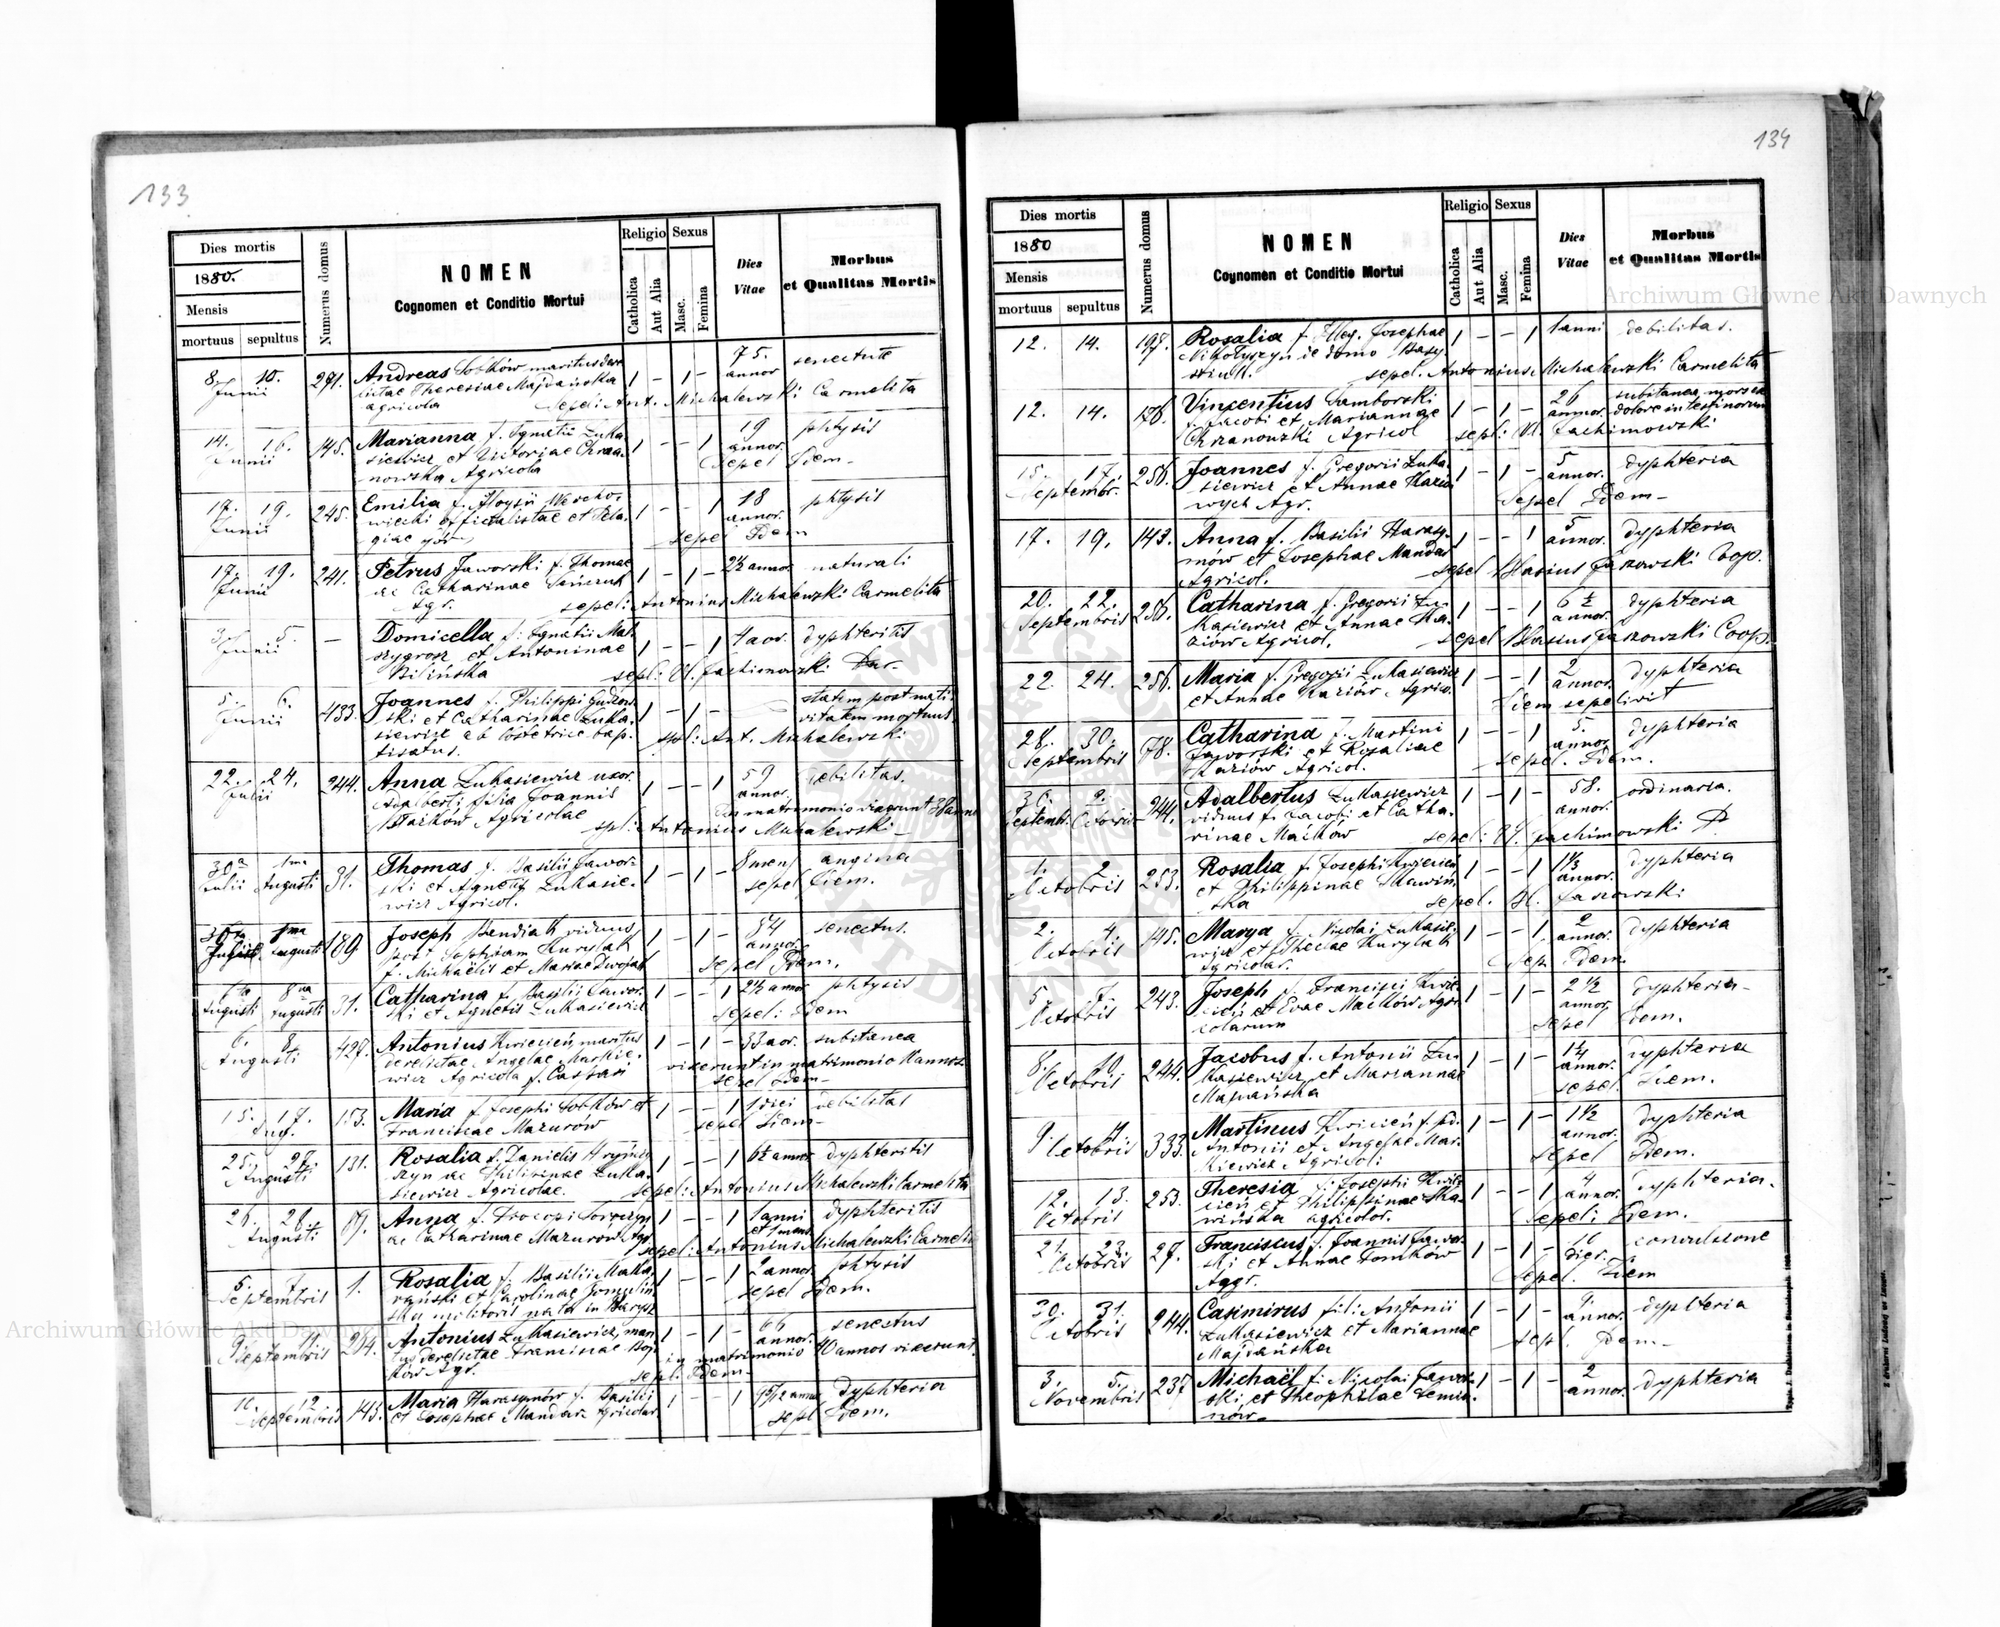 133
Dies mortis
1880.
Mensis
mortuus sepultus
Numerus domus
NOMEN
Cognomen et Conditio Mortui
Religio
Catholica
Aut Alia
Sexus
Masc.
Femina
Dies
Vitae
Morbus
et Qualitas Mortis
8 10. 271. Andreas Sobków maritus 1 - 1 - 75. senectute
Junii Theresiae Majdańska annor
agricola Sepel: Ant. Michalewski Carmelita
14. 16. 145. Marianna f. Ignatii Łuka- 1 - - 1 19 phtysis
Junii siewicz et Victoriae Chrza- annor.
nowska Agricola Sepel Idem -
17. 19. 245. Emilia f. Aloysii 1 - - 1 18 phtysis
Junii officialistae et Pela- annor.
giae sepel Idem
17. 19. 241. Petrus Jaworski f. Thomae 1 - 1 - 2½ annor naturali
Junii ac Catharinae
Agr. sepel: Antonius Michalewski Carmelita
3 5. - Domicella f. Ignatii Mal- 1 - - 1 dyphteritis
Junii szygrosz et Antoninae
Bilińska sepel: Vl. Jachimowski
5. 6. 433. Joannes f. Philippi 1 - 1 - statem post nati-
Junii. ski et Catharinae Łuka- vitatem mortuus.
siewicz ab obstetrice bap- spl: Ant. Michalewski
tisatus.
22. 24. 244. Anna Łukasiewicz uxor 1 - - 1 59 debilitas.
Julii Adalberti filia Joannis annor.
Maćków Agricolae in matrimonio vixerunt
spl: Antonius Michalewski -
30a 1ma 31. Thomas f. Basilii Jawor- 1 - 1 - 8 mens angina
Julii Augusti ski et Agnetis Łukasie- sepel Idem.
wicz Agricol.
1ma 189 Joseph viduus 1 - 1 - 84 senectus.
Augusti post Sophiam Kurylak annor.
f. Michaëlis et Mariae sepel Idem.
8va 31. Catharina f. Basilii Jawor- 1 - - 1 2½ annor phtysis
Augusti Augusti ski et Agnetis Łukasiewicz sepel: Idem
6 8 427. Antonius Kwiecień, maritus 1 - 1 - 33 aor. subitanea
Augusti derelictae Angelae Markie- vixerunt in matrimonio
wicz Agricola f. Caspari sepel Idem -
15. 17. 153. Maria f. Josephi Sobków et 1 - - 1 1 diei debilitas
Aug. Franciscae Mazurów sepel Idem -
25. 27. 131. Rosalia f. Danielis Hryńcy- 1 - - 1 6½ annor dyphteritis
Augusti szyn ac Philipinae Łuka-
siewicz Agricolae. sepel: Antonius Michalewski Carmelita
26. 28. 89. Anna f. Procopi 1 - - 1 1 anni dyphteritis
Augusti ac Catharinae Mazurów Agr. et 1 mens.
sepel: Antonius Michalewski Carmelita
5. 7 1. Rosalia f. Basilii Maka- 1 - - 1 2 annor phtysis
Septembris rzyński et Carolinae sepel Idem.
ska militoris nata in Barysz
9 11 294. Antonius Łukasiewicz, mari- 1 - 1 - 66 senectus
Septembris tus derelictae Franciscae annor.
ków Agr. in matrimonio 40 annos vixerunt.
sepel: Idem -
10. 12 143. Maria Harasymów f. Basilii 1 - - 1 annor dyphteria
Septembris et Josephae Mandar Agricolar. sepl Idem.
134
Dies mortis
1880
Mensis
mortuus sepultus
Numerus domus
NOMEN
Cognomen et Conditio Mortui
Religio
Catholica
Aut Alia
Sexus
Masc.
Femina
Dies
Vitae
Morbus
et Qualitas Mortis
12. 14. 197. Rosalia f. Illeg. Josephae 1 - - 1 1 anni debilitas.
de domo
sepel. Antonius Michalewski Carmelita
12. 14. 176. Vincentius Samborski 1 - 1 - 26 subitanea mors ex
f. Jacobi et Mariannae annor. dolore intestinorum
Chrzanowski Agricol sepel: Vl. Jachimowski
15. 17. 256. Joannes f. Gregorii Łuka- 1 - 1 - 5 dyphteria
Septembr. siewicz et Annae Kazió- annor.
wych Agr. Sepel Idem -
17. 19. 143. Anna f. Basilii Harasy- 1 - - 1 5 dyphteria
mów et Josephae Mandar annor.
Agricol. sepel Blasius Jaxowski Coop.
20. 22. 256. Catharina f. Gregorii Łu- 1 - - 1 6½ dyphteria
Septembris kasiewicz et Annae Ka- annor.
ziów Agricol. sepel Blasius Jaxowski Coop.
22. 24. 256. Maria f. Gregorii Łukasiewicz 1 - - 1 2 dyphteria
et Annae Kaziów Agrico. annor.
Idem sepelivit
28. 30. 78. Catharina f. Martini 1 - - 1 5. dyphteria
Septembris Jaworski et Rosaliae annor
Kaziów Agricol. sepel. Idem.
30. 2. 244. Adalbertus Łukasiewicz 1 - 1 - 58. ordinaria.
Septemb. Octobris viduus f. Jacobi et Catha- annor.
rinae Maćków sepel: Vl. Jachimowski
1. 2 253. Rosalia f. Josephi Kwiecień 1 - - 1 dyphteria
Octobris et Philippinae Skawiń- annor.
ska sepel. Bl. Jaxowski
2. 4. 145. Marya f. Nicolai Łukasie- 1 - - 1 2 dyphteria
Octobris wicz et Theclae Kurylak annor.
Agricolar. Sep. Idem
5 7 243. Joseph f. Francisci Kwie- 1 - 1 - 2½ dyphteria -
Octobris cień et Evae Maćków Agri- annor
colarum sepel Idem.
8. 10 244. Jacobus f. Antonii Łu- 1 - 1 - 1¼ dyphteria
Octobris kasiewicz et Mariannae annor.
Majdańska sepel. Idem.
9 11 333. Martinus Kwiecień f. pd. 1 - 1 - 1½ dyphteria
Octobris Antonii et Angelae Mar- annor.
kiewicz Agricoli: sepel Idem.
12. 13. 253. Theresia f: Josephi Kwie- 1 - - 1 4 dyphteria.
Octobris cień et Philippinae Ska- annor.
wińska agricolar. Sepel: Idem.
21. 23. 27. Franciscus f. Joannis Jawor- 1 - 1 - 10 convulsione
Octobris ski et Annae Tomków dier.
Aggr. Sepel. Idem
30. 31. 244. Casimirus fil: Antonii 1 - 1 - dyphteria
Octobris Łukasiewicz et Mariannae annor.
Majdańska sepl. Idem -
3. 5. 237 Michaël f: Nicolai Jawor- 1 - 1 - 2 dyphteria
Novembris ski, et Theophilae Semia- annor.
nów -
Archiwum Główne Akt Dawnych
Archiwum Główne Akt Dawnych